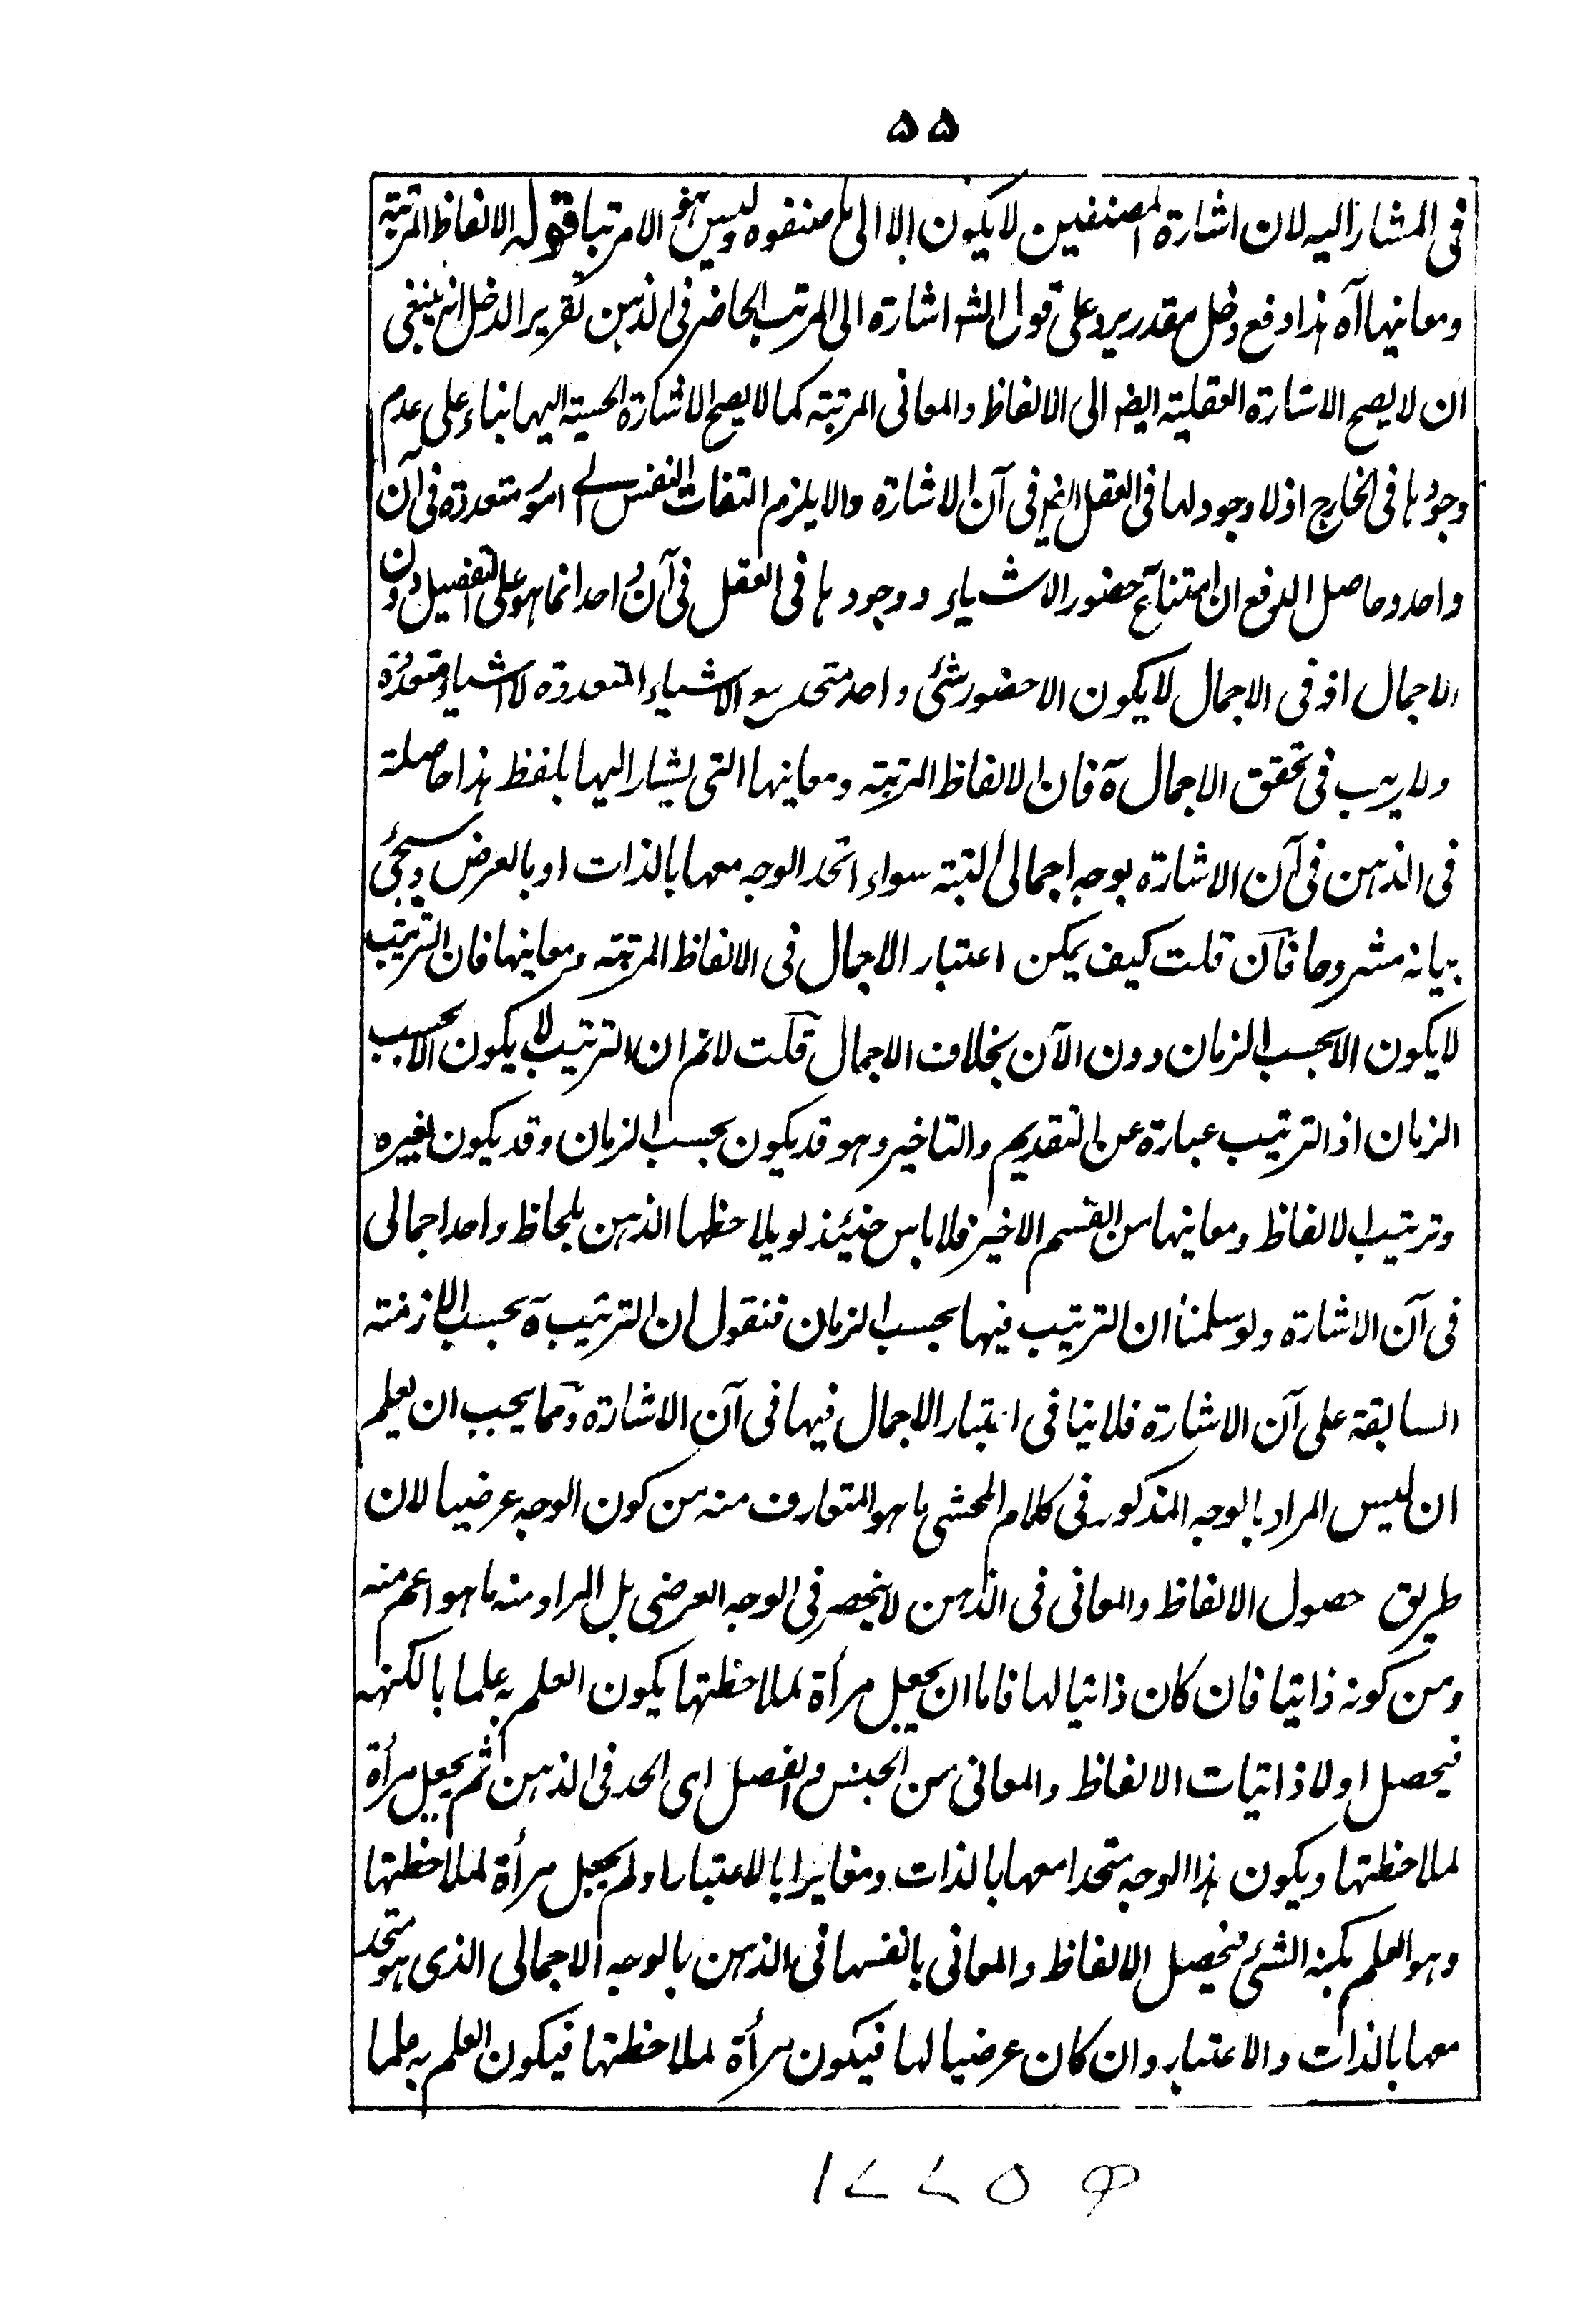 ۵۵
فى المشار اليه لان اشارة المصنفين لا يكون الا الى ما صنفوه وليس هو الا مرتبا قوله الالفاظ المرتبة
ومعانيها آه هذا دفع دخل مقدر يرد على قول الشـ اشارة الى المرتب الحاضر فى الذهن تقرير الدخل انه ينبغى
ان لا يصح الاشارة العقلية ايضا الى الالفاظ والمعانى المرتبة كما لا يصح الاشارة الحسية اليها بناء على عدم
وجودها فى الخارج اذ لا وجود لها فى العقل ايضا فى آن الاشارة والا يلزم التفات النفس الى امور متعددة فى آن
واحد وحاصل الدفع ان امتناع حضور الاشياء ووجودها فى العقل فى آن واحد انما هو على التفصيل دون
الاجمال اذ فى الاجمال لا يكون الا حضور شئى واحد متحد مع الاشياء المتعددة لا اشياء متعددة
ولا ريب فى تحقق الاجمال آه فان الالفاظ المرتبة ومعانيها التى يشار اليها بلفظ هذا حاصلة
فى الذهن فى آن الاشارة بوجه اجمالى البتة سواء اتحد الوجه معها بالذات او بالعرض ويجئى
بيانه مشروحا فان قلت كيف يمكن اعتبار الاجمال فى الالفاظ المرتبة ومعانيها فان الترتيب
لا يكون الا بحسب الزمان دون الآن بخلاف الاجمال قلت لا نم ان الترتيب لا يكون الا بحسب
الزمان اذ الترتيب عبارة عن التقديم والتاخير وهو قد يكون بحسب الزمان وقد يكون بغيره
وترتيب الالفاظ ومعانيها من القسم الاخير فلا باس حينئذ لو يلاحظها الذهن بلحاظ واحد اجمالى
فى آن الاشارة ولو سلمنا ان الترتيب فيها بحسب الزمان فنقول ان الترتيب آه بحسب الازمنة
السابقة على آن الاشارة فلا ينافى اعتبار الاجمال فيها فى آن الاشارة ومما يجب ان يعلم
ان ليس المراد بالوجه المذكور فى كلام المحشى ما هو المتعارف منه من كون الوجه عرضيا لان
طريق حصول الالفاظ والمعانى فى الذهن لا ينحصر فى الوجه العرضى بل المراد منه ما هو اعم منه
ومن كونه ذاتيا فان كان ذاتيا لها فاما ان يجعل مرأة لملاحظتها يكون العلم به علما بالكنه
فيحصل اولا ذاتيات الالفاظ والمعانى من الجنس والفصل اى الحد فى الذهن ثم يجعل مرأة
لملاحظتها ويكون هذا الوجه متحدا معها بالذات ومغايرا بالاعتبار او لم يجعل مرأة لملاحظتها
وهو العلم بكنه الشئى فيحصل الالفاظ والمعانى بانفسها فى الذهن بالوجه الاجمالى الذى هو متحد
معها بالذات والاعتبار وان كان عرضيا لها فيكون مرأة لملاحظتها فيكون العلم به علما